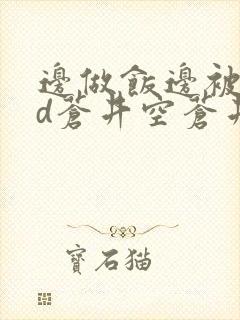 邊做飯邊被
d蒼井空蒼井
寶石猫